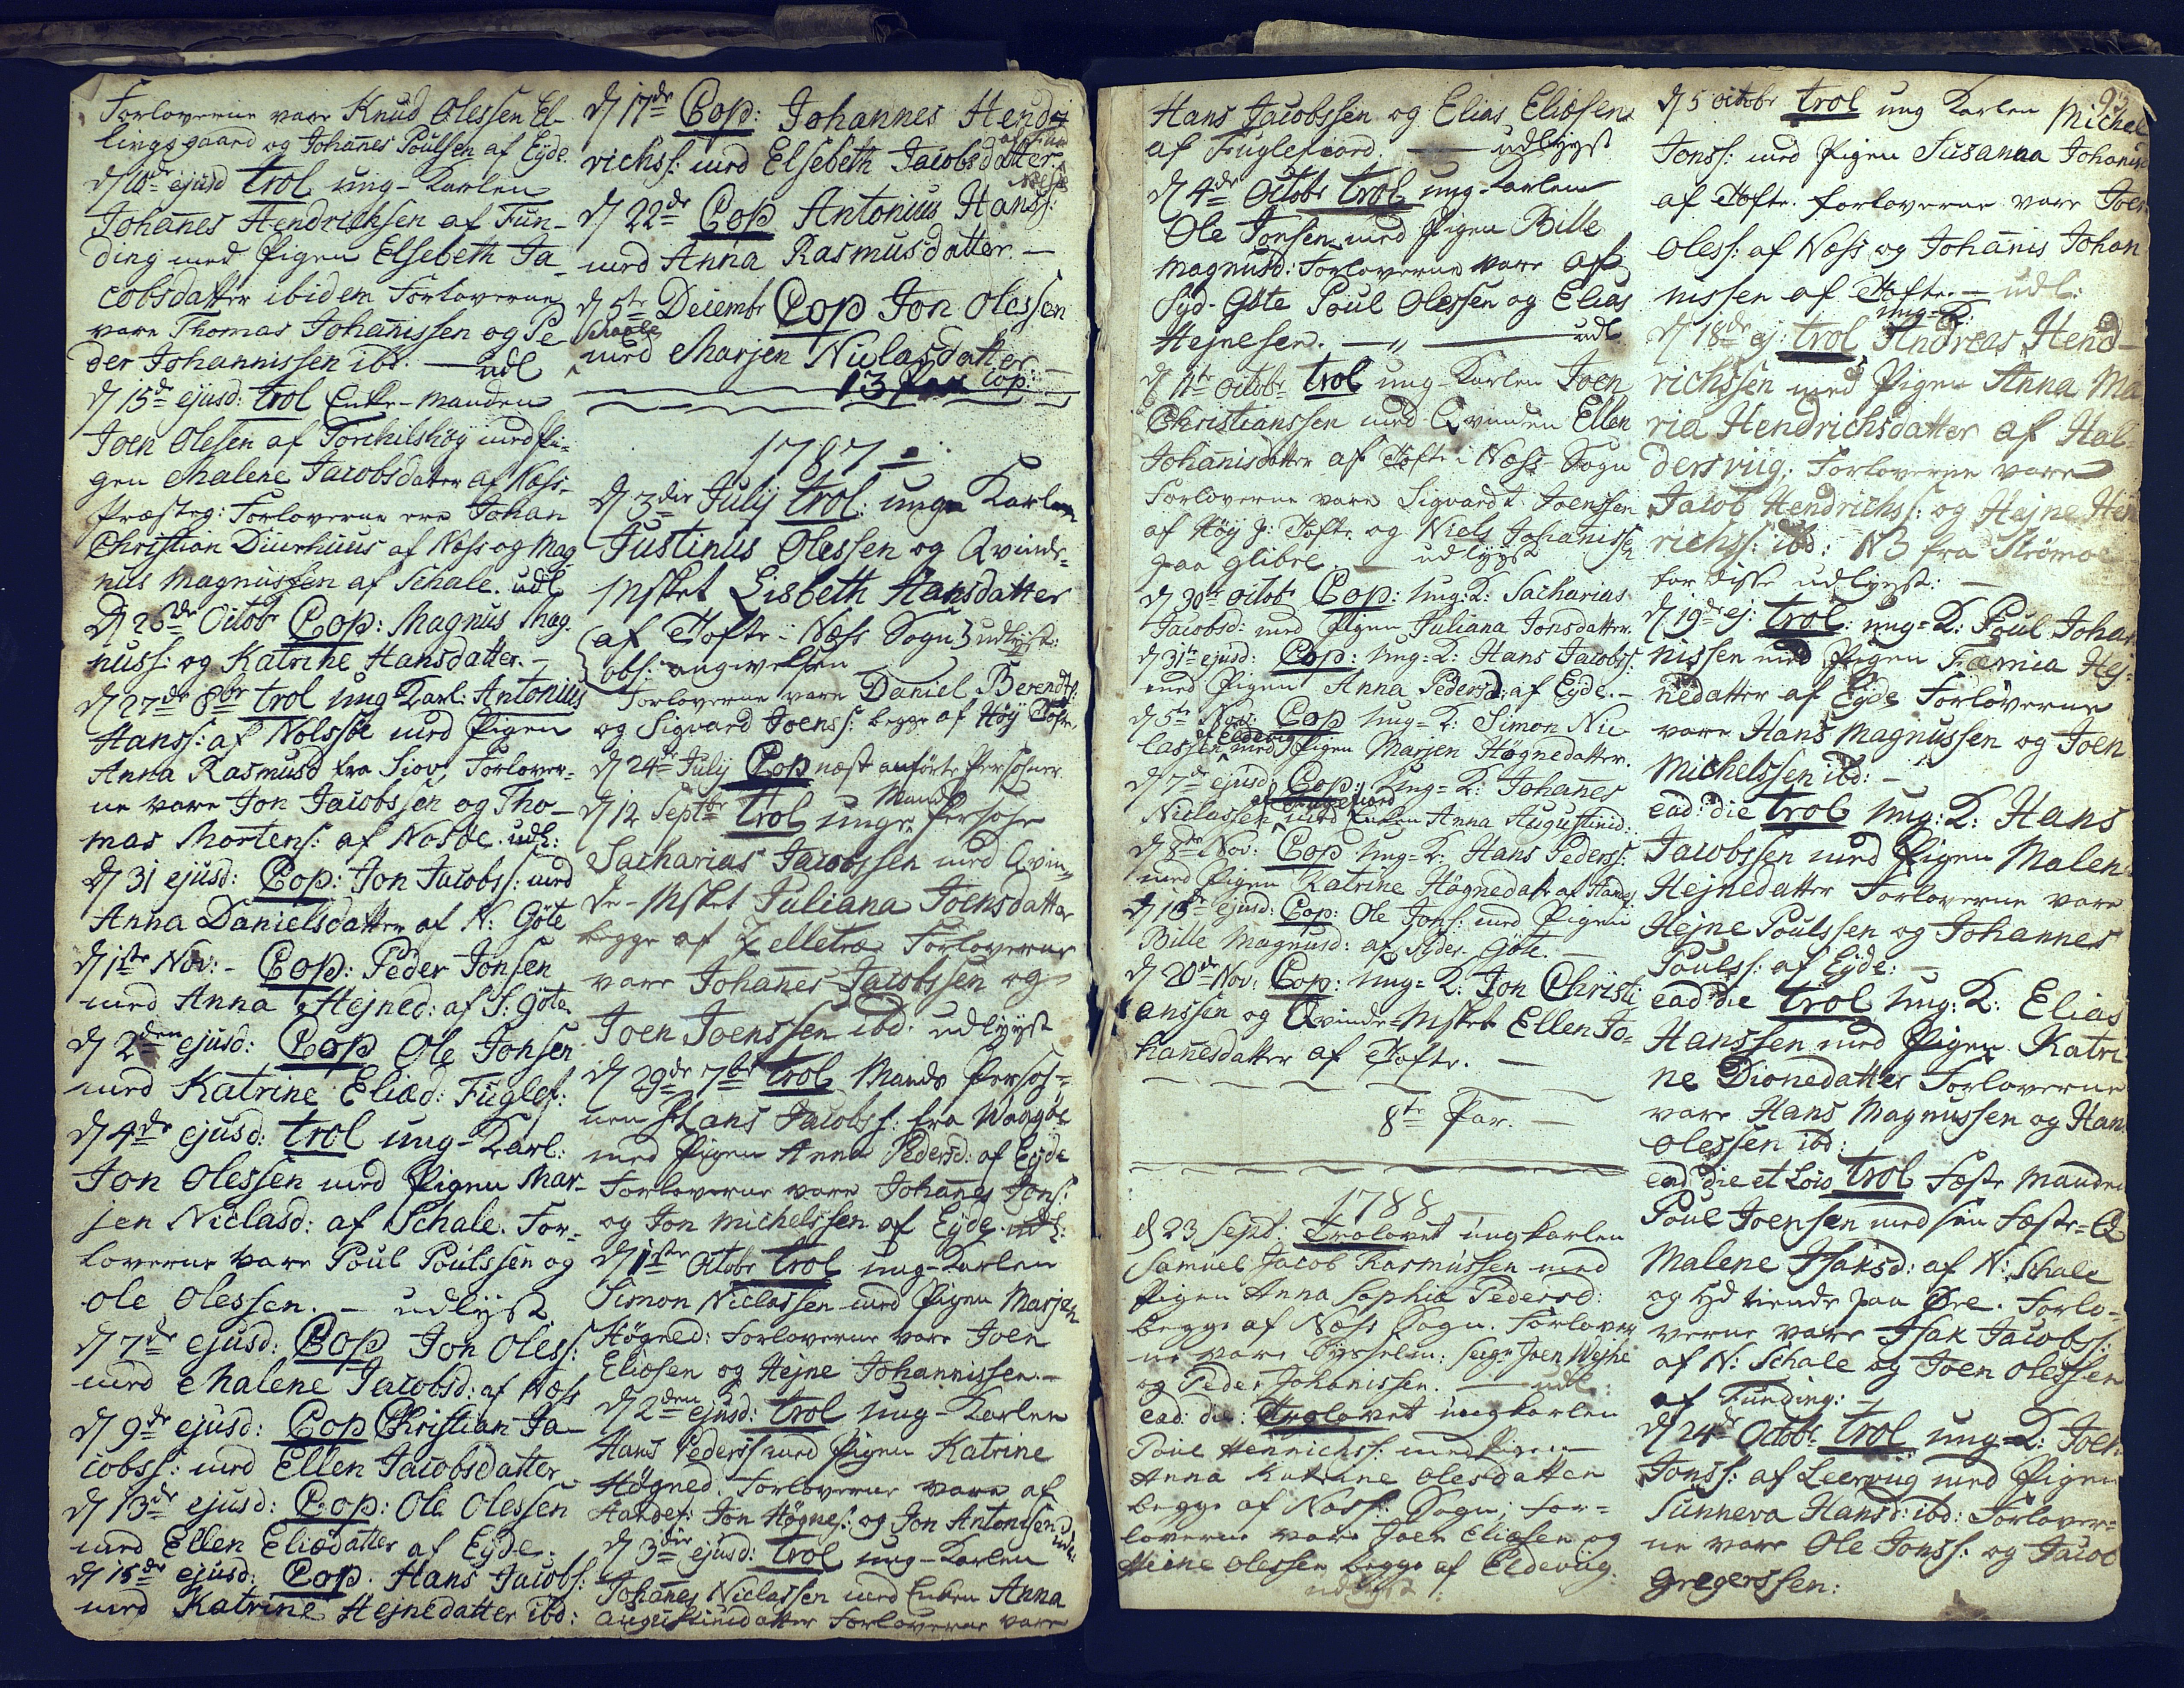 Forloverne vare Knud Olessen El-
lingsgaard og Johañes Poulsen af Eyde.
d 10de ejusd trol ung-Karlen
Johañes Hendrichsen af Fun-
ding med Pigen Elsebeth Ja-
cobsdatter ibidem Forloverne
vare Thomas Johañissen og Pe-
der Johannissen ibd. — udl
d 15de ejusd: trol Enke-Manden
Joen Olesen af Torchilshöy med Pi-
gen Malene Jacobsdatter af Næss-
Præsteg: Forloverne ere Johan
Christian Diurhuus af Næss og Mag-
nus Magnussen af Schale. udl
D 26de Octobr Cop: Magnus Mag-
nuss: og Katrine Hansdatter. -
d 27de 8br trol ung Karl: Antonius
Hanss: af Nolsöe med Pigen
Anna Rasmusd fra Siov, Forlover-
ne vare Jon Jacobssen og Tho-
mas Mortens: af Nolsöe. udl:
d 31 ejusd: Cop: Jon Jacobs: med
Anna Danielsdatter af N: Göte
d 1ste Nov: - Cop: Peder Jonsen
med Anna Hejned: af S: göte
d 2den ejusd: Cop Ole Jonsen
med Katrine Eliæd: Fuglef:
d 4de ejusd: trol ung-Karl:
Jon Olessen med Pigen Mar-
jen Niclasd: af Schale. For-
loverne vare Poul Poulssen og
Ole Olessen. - udlyst
d 7de ejusd: Cop Jon Oless:
med Malene Jacobsd: af Næss
d 9de ejusd: Cop Christian Ja-
cobss: med Ellen Jacobsdatter
d 13de ejusd: Cop: Ole Olessen
med Ellen Eliædatter af Eyde.
d 15de ejusd: Cop. Hans Jacobs:
med Katrine Hejnedatter ibd:
d 17de Cop: Johannes Hend-
richss: med Elsebeth Jacobsdatter
d 22de Cop Antonius Hanss:
med Anna Rasmusdatter. —
d 5te Decembr Cop Jon Olessen
Schaale
med Marjen Niclasdatter. —
13 Par Cop:
1787 -
d 3die Julij trol: unge Karlen
Justinus Olessen og Qvinde-
Msket Lisbeth Hansdatter
af Tofte i Næss Sogn} udlyst:
obs: angivelsen
Forloverne vare Daniel Berendts:
og Sigvard Joens: begge af Höy Tofte
d 24de Julij Cop næst anförte Persohner
d 12 Septbr trol unge Mands Persohn
Sacharias Jacobssen med Qvin-
de-Msket Juliana Joensdatter
begge af Zelletræ Forloverne
vare Johañes Jacobssen og
Joen Joenssen ibd: udlyyst
d 29de 7br trol Mands Persoh-
nen Hans Jacobs: fra Waagöe
med Pigen Anna Pedersd: af Eyde
Forloverne vare Johañes Jons:
og Jon Michelssen af Eyde. udl:
d 1ste Octobr trol ung-Karlen
Simon Niclassen med Pigen Marjen
Högned: Forloverne vare Joen
Eliæsen og Hejne Johannissen. -
d 2den ejusd: trol ung-Karlen
Hans Peders: med Pigen Katrine
Högned. Forloverne vare af
Handef: Jon Högnes: og Jon Antonissen udl:
d 3die ejusd: trol ung-Karlen
Johañes Niclassen med Enken Anna
Augustinidatter Forloverne vare
Hans Jacobssen og Elias Eliæsen
af Fuglefiord. — udlyyst
d 4de Octobr trol ung-Karlen
Ole Jonsen med Pigen Bille
Magnusd: Forloverne vare af
Syd-Göte Poul Olessen og Elias
Hejnesen. —„— udl
d 11te Octobr trol ung-Karlen Joen
Christianssen med Qvinden Ellen
Johañisdatter af Tofte i Næss-Sogn
Forloverne vare Sigvardt Joenssen
af Höy J: Tofte og Niels Johañissen
paa Glibre. udlyyst
d 30te Octobr Cop: Ung: K: Sacharias
Jacobsd: med Pigen Juliana Jonsdatter.
d 31te ejusd: Cop: Ung: K: Hans Jacobss:
med Pigen Anna Pedersd: af Eyde. -
d 5te Nov: Cop Ung-K: Simon Nic-
af Eldevig
lassen med Pigen Marjen Högnedatter.
d 7de ejusd: Cop: Ung-K: Johañes
af Fuglefiord
Niclassen med Enken Anna Augustinid:
d 8de Nov: Cop Ung-K: Hans Peders:
med Pigen Katrine Högnedatr af Handef:
d 18de ejusd: Cop: Ole Jons: med Pigen
Bille Magnusd: af Syder Göte. —
d 20de Nov: Cop: Ung-K: Jon Christi-
anssen og Qvinde-Msket Ellen Jo-
hañesdatter af Tofte. —
8te Par. —
1788
d 23 Sept: Trolovet ungkarlen
Samuel Jacob Rasmussen med
Pigen Anna Sophia Pedersd:
begge af Næss Sogn. Forlover
ne vare Sysselm: Seigr Joen Wejhe
og Peder Johanissen. — udl:
ead: die: Trolovet ungkarlen
Poul Henrichs: med Pigen
Anna Katrine Olesdatter
begge af Næss: Sogn; For-
loverne vare Joen Eliæsen og
Heine Olessen begge af Eldevig.
udlyst
93
d 5 Octobr trol ung Karlen Michel
Jonss: med Pigen Susanna Johanis
af Tofte. Forloverne vare Joen
Oless: af Næss og Johañis Johan
nissen af Tofte. — udl:
ung-K:
d 18de ej: trol Andreas Hend-
richssen med Pigen Anna Ma
ria Hendrichsdatter af Hal-
dersviig. Forloverne vare
Jacob Hendrichs: og Hejne Hen
richs: ibd: NB fra Strömoe
for disse udlyyst: —
d 19de ej: trol: ung-K: Poul Johan
nissen med Pigen Fæmia Hej-
nedatter af Eyde Forloverne
vare Hans Magnussen og Joen
Michelssen ibd: -
ead: die trol Ung: K: Hans
Jacobssen med Pigen Malen
Hejnedatter Forloverne vare
Hejne Poulssen og Johannes
Pouls: af Eyde: —
ead: die trol Ung: K: Elias
Hanssen med Pigen Katri-
ne Dionedatter Forloverne
vare Hans Magnussen og Han
Olessen ibd:
ead: die et loco trol Fæste Manden
Poul Joensen med sin Fæste-Q
Malene Isaksd: af N: Schale
og paa Öre. Forlo-
verne vare Isak Jacobss:
af N: Schale og Joen Olessen
af Funding: —
d 24de Octobr trol ung-K: Joen
Jonss: af Leerviig med Pigen
Sunneva Hansd: ibd: Forlover-
ne vare Ole Jonss: og Jacob
Gregerssen: